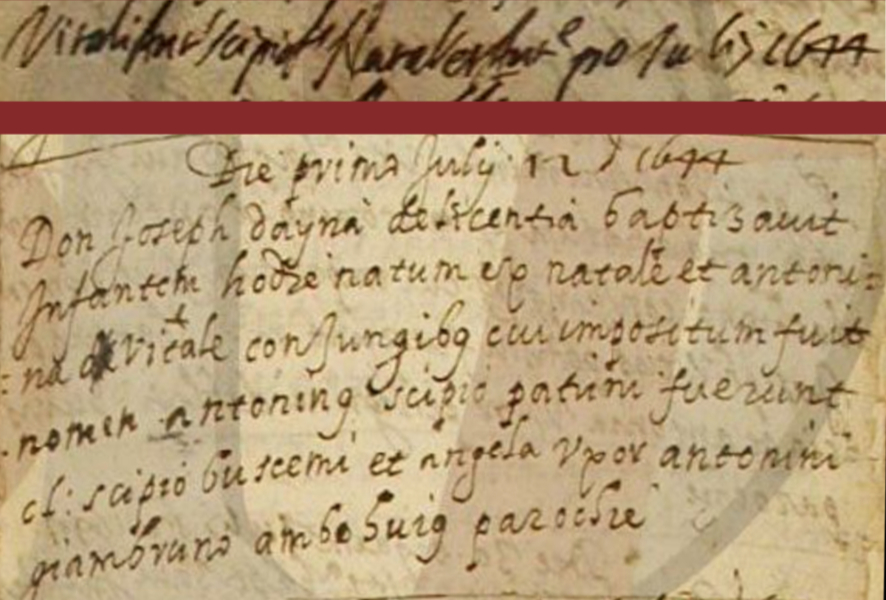 Die primo July 12 J 1644
Don Joseph dayna de licentia baptizauit
Infantem hodie natum ex natale et antoni=
=na de vitale conJungibg cui impositum fuit
nomen antoning scipio patrini fuerunt
cl: scipio buscemi et angela vxor antonini
giambruno ambo huig parochie